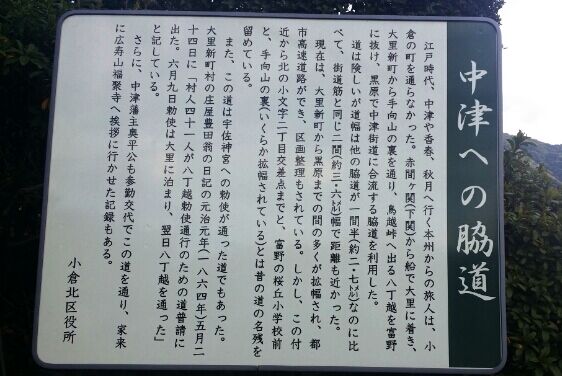 中津への脇道
江戸時代、中津や香春、秋月へ行く本州からの旅人は、小
倉の町を通らなかった。赤間ヶ関(下関)から船で大里に着き、
大里新町から手向山の裏を通り、鳥越峠へ出る八丁越を富野
に抜け、黒原で中津街道に合流する脇道を利用した。
道は険しいが道幅は他の脇道が一間半(約二・七㍍)なのに比
べて、街道筋と同じ二間(約三・六㍍)幅で距離も近かった。
現在は、大里新町から黒原までの間の多くが拡幅され、都
市高速道路ができ、区画整理もされている。しかし、この付
近から北の小文字二丁目交差点までと、富野の桜丘小学校前
と、手向山の裏(いくらか拡幅されている)とは昔の道の名残を
留めている。
また、この道は宇佐神宮への勅使が通った道でもあった。
大里新町村の庄屋豊田翁の日記の元治元年(一八六四年)五月二
十四日に「村人四十一人が八丁越勅使通行のための道普請に
出た。六月九日勅使は大里に泊まり、翌日八丁越を通った」
と記している。
さらに、中津藩主奥平公も参勤交代でこの道を通り、家来
に広寿山福聚寺へ挨拶に行かせた記録もある。
小倉北区役所